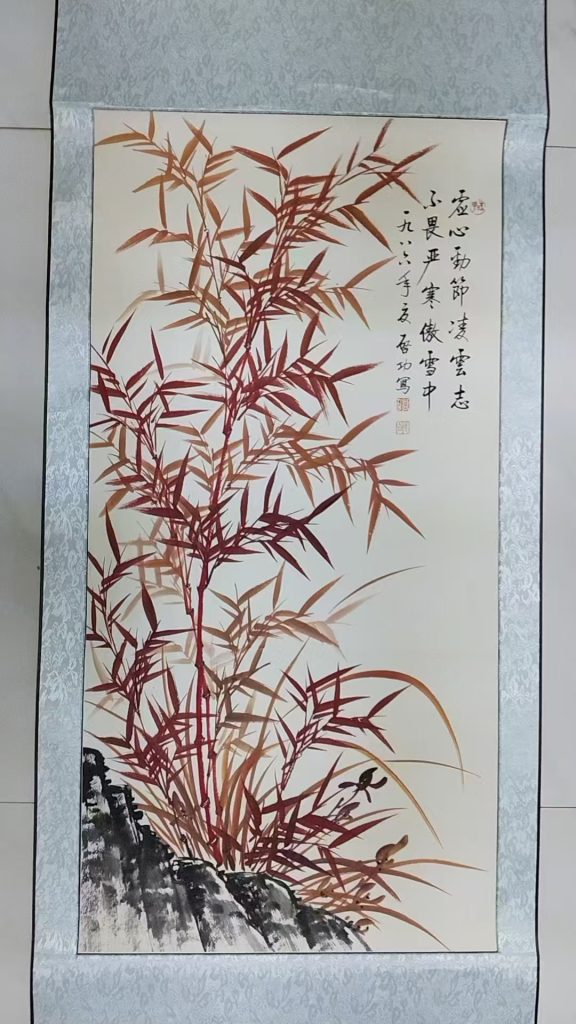 虚心劲節凌雲志
不畏严寒傲雪中
一九八六年夏启功写